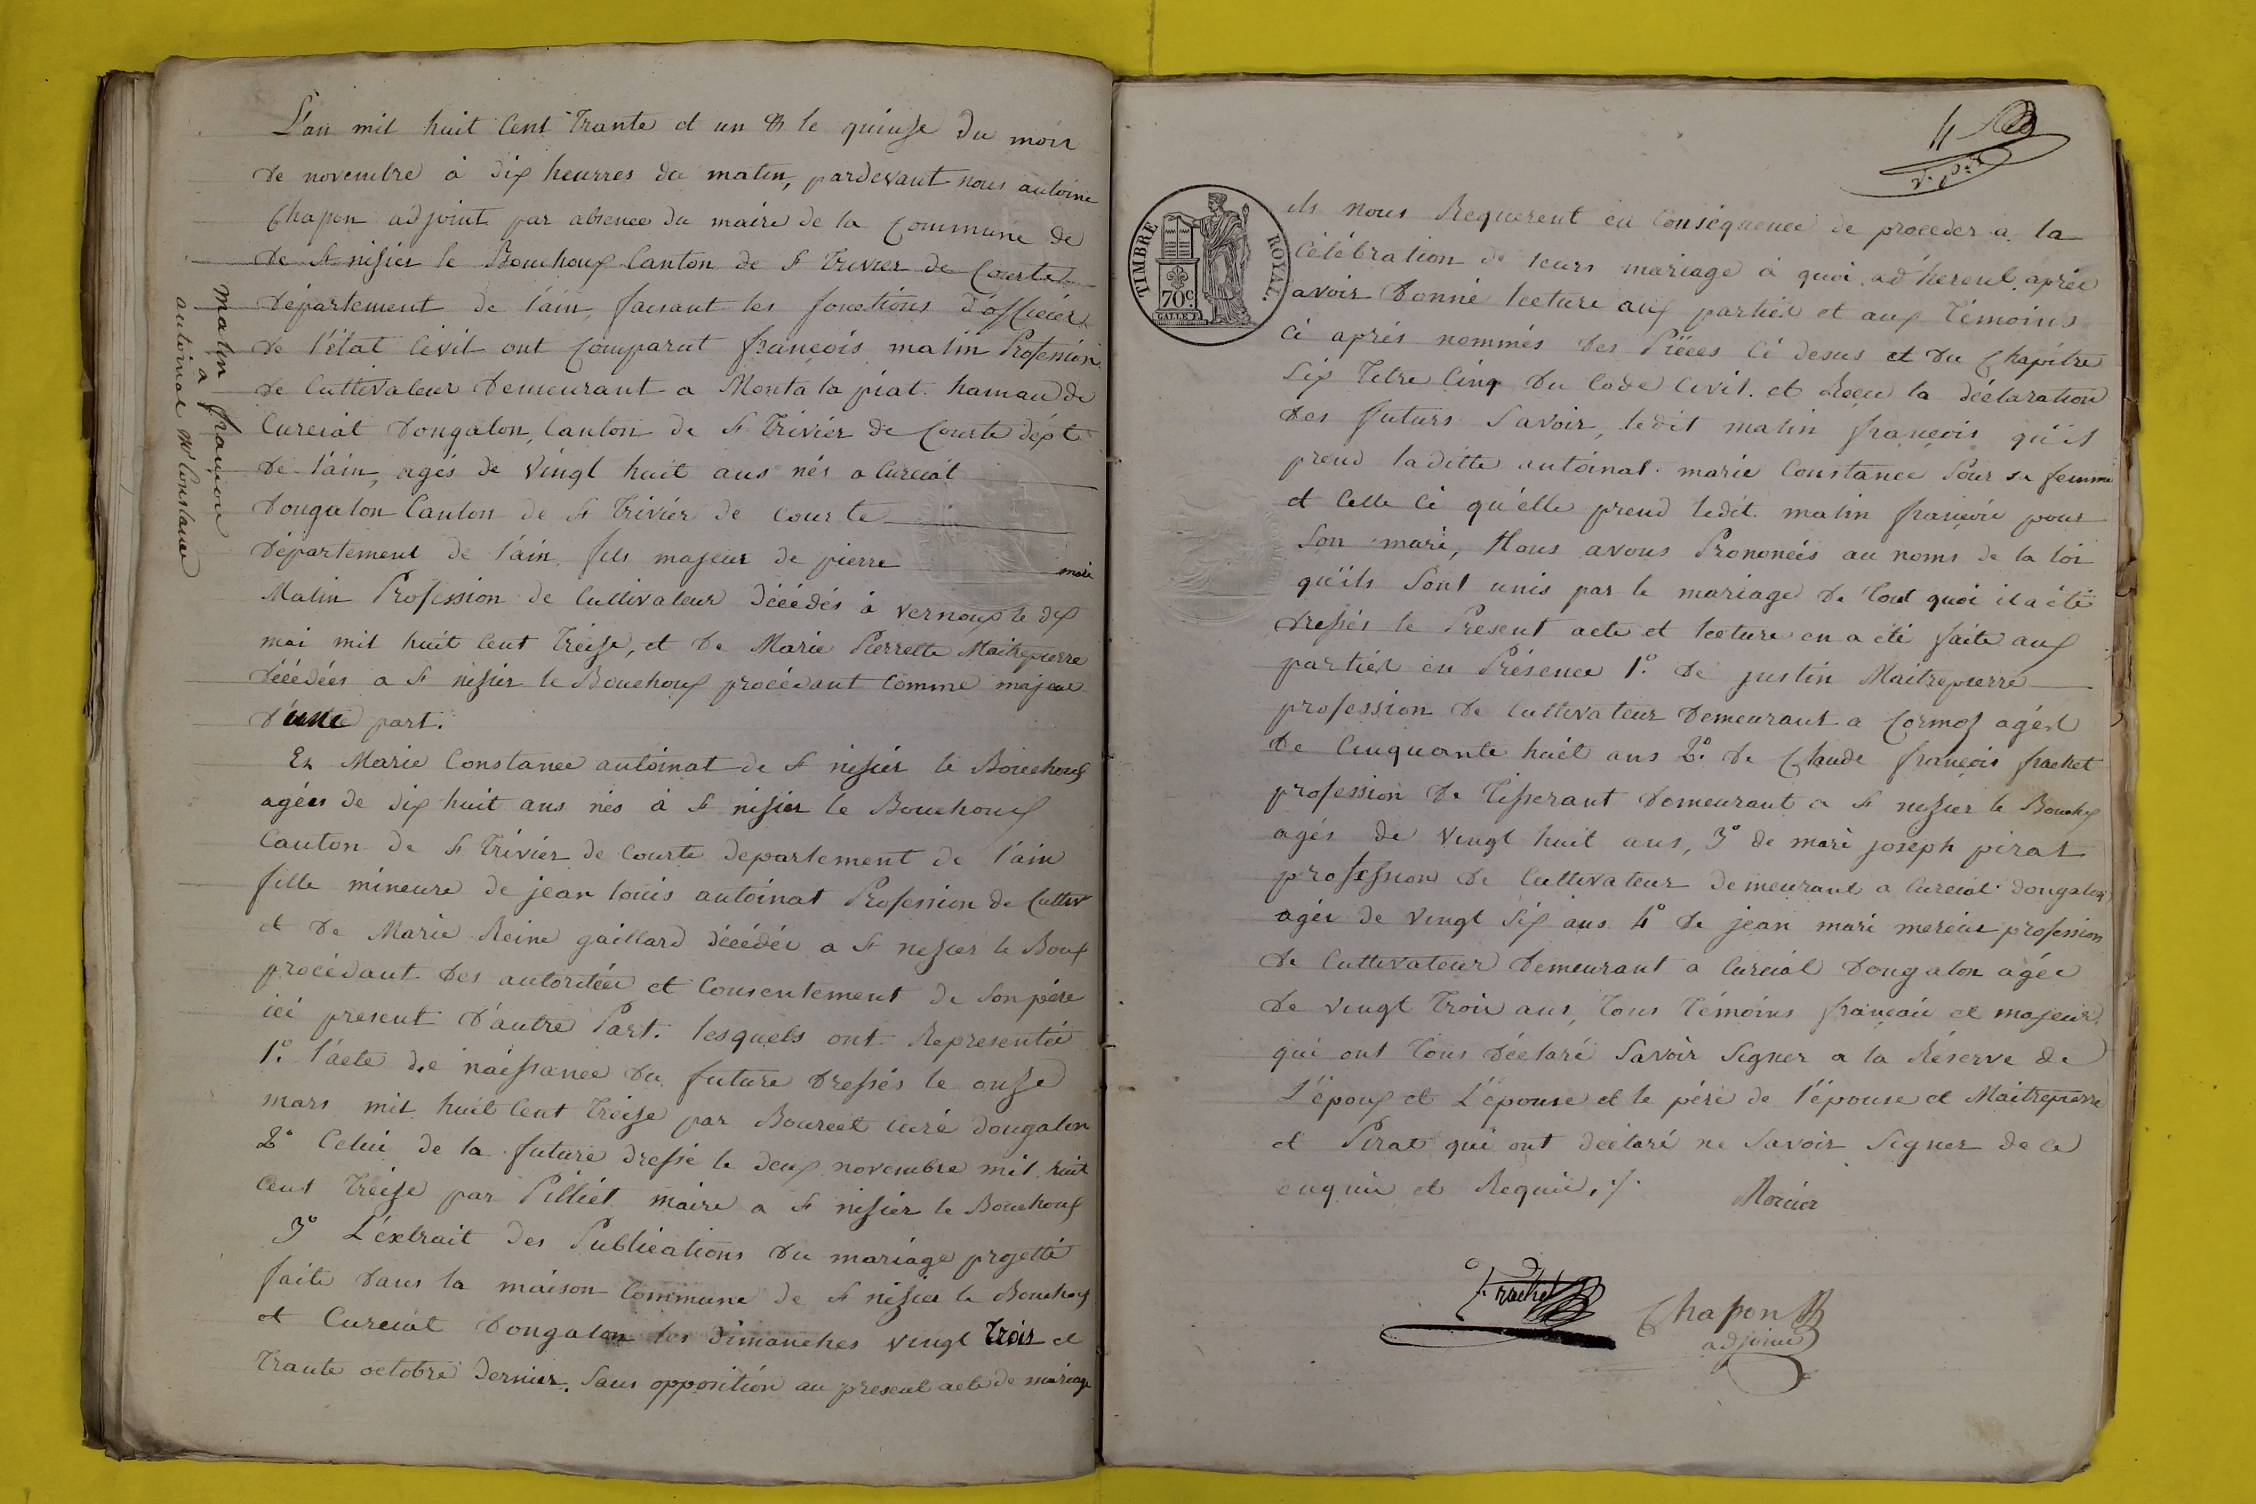 L'an mil huit Cent Trante et un & le quinse du mois
de novembre à dix heurres du matin, pardevant nous antoine
Chapon adjoint par absence du maire de la Commune de
de St nisier le Bouchoux Canton de St Trivier de Courte
Département de l'ain, faisant les fonctions d'officier
de l'état Civil ont Comparut françois matin Profession
de Cultivateur Demeurant a Monta la piat. hamau de
Curciat Dongalon, Canton de St Trivier de Courte dépt
de l'ain, agés de Vingt huit ans nés a Curciat
Dongalon Canton de St Trivier de Courte
Département de l'ain, fils majeur de pierre mari
Matin Profession de Cultivateur Décédés à vernoux le dix
mai mil huit Cent Treise, et de Marie Pierrette Maitrepierre
Décédées a St nisier le Bouchoux procédant Comme majeur
D'une part.
Et Marie Constance antoinat de St nisier le Bouchoux
agées de dix huit ans nés à St nisier le Bouchoux
Canton de St Trivier de Courte departement de l'ain
fille mineure de jean louis antoinat Profession de Cultiv
et de Marie Reine gaillard décédée a St nisier le Boux
procédant des autoritée et Consentement de Son père
ici present D'autre Part. lesquels ont Representée
1.º l'acte de naissance du future Dressés le onse
mars mil huit Cent Treise par Bourcet Curé dongalon
2º Celui de la future dressé le deux novembre mil huit
Cent Treise par Pilliet maire a St nisier le Bouchoux
3º L'éxtrait des Publications du mariage projetté
faite Dans la maison Commune de St nisier le Bouchoux
et Curciat Dongalon les dimanches vingt Trois et
Trante octobre Dernier. Sans opposition au present acte de mariage
matin françois
a
antoinat Me Constance
4
ils nous Requerent en Conséquence de proceder a la
Célébration de leurs mariage à quoi adherent après
avoir Donné lecture aux partiés et aux Témoins
Ci aprés nommés des Piéces Ci desus et du Chapitre
Six Titre Cinq du Code Civil. et Recu la déclaration
Des futurs Savoir, ledit matin françois qu'il
prend laditte antoinat marie Constance Pour sa femme
et Celle Ci qu'élle prend ledit matin françois pour
Son mari, Nous avons Prononcés au noms de la loi
qu'ils Sont unis par le mariage de Tout quoi il a été
dressés le Présent acte et lecture en a été faite aux
partiés en Présence 1.º de justin Maitrepierre
profession de Cultivateur Demeurant a Cormoz agés
de Cinquante huit ans 2.º de Claude françois frachet
profession de Tisserant Demeurant a St nisier le Bouchx
agés de Vingt huit ans, 3º de mari joseph pirat
profession de Cultivateur Demeurant a Curciat dongalon
agés de vingt six ans 4º de jean mari mercier profession
de Cultivateur Demeurant a Curciat Dongalon agée
de vingt trois ans, Tous Témoins français et majeurs
qui ont Tous déclaré Savoir Signer a la Réserve de
L'époux et L'épouse et le pére de l'épouse et Maitrepierre
et Pirat qui ont déclaré ne Savoir Signer de ce
enquis et Requis, ./.
Mercier
Frachet
Chapon
adjoint
TIMBRE ROYAL.
70C.
GALLE F.